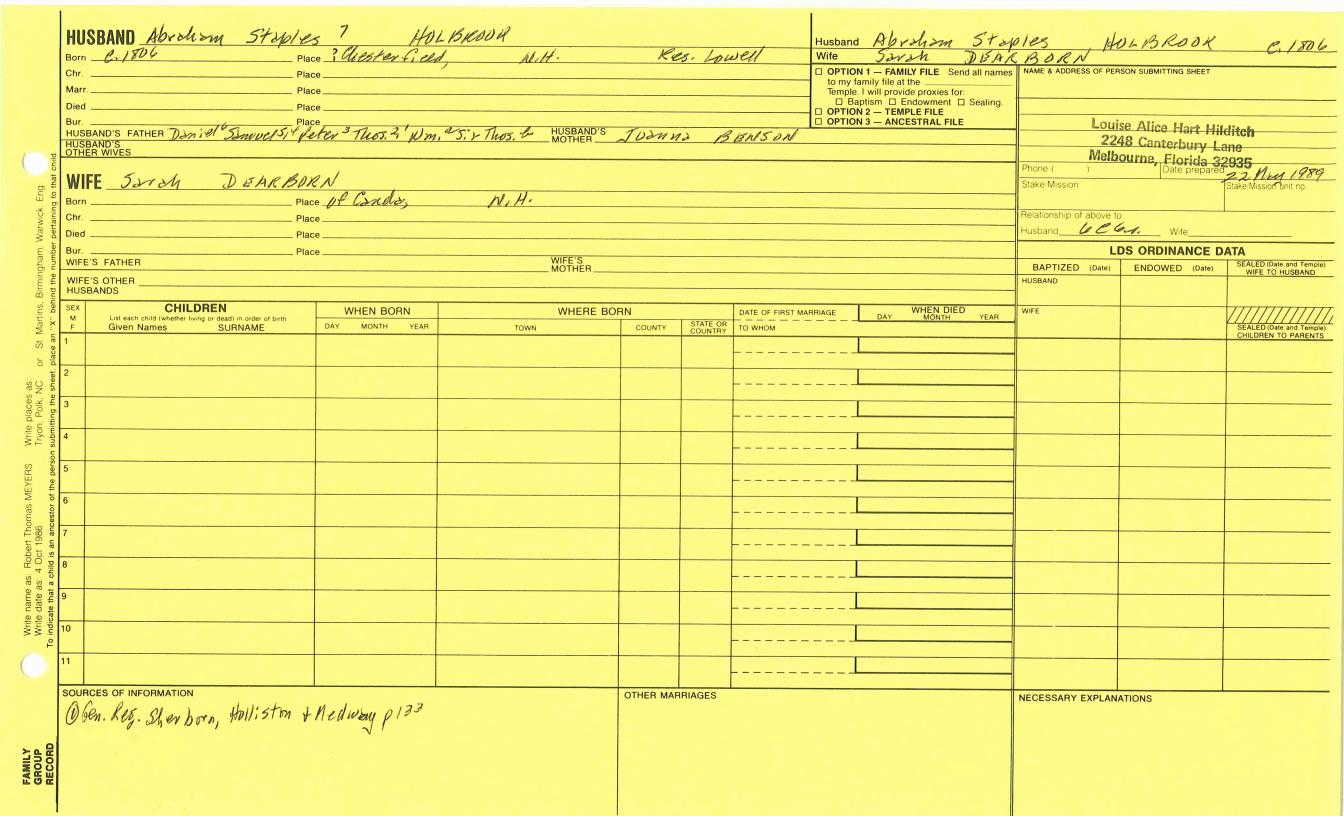 HUSBAND Abraham Staples 7 HOLBROOK
Born c. 1806 Place ? Chesterfield, N.H. Res. Lowell
Chr. Place
Marr. Place
Died Place
Bur. Place
HUSBAND'S FATHER Daniel 6 Samuel 5, 4 Peter 3 Thos. 2, 1 Wm. HUSBAND'S MOTHER Joanna BENSON
HUSBAND'S OTHER WIVES
WIFE Sarah DEARBORN
Born Place of Candia, N.H.
Chr. Place
Died Place
Bur. Place
WIFE'S FATHER WIFE'S MOTHER
WIFE'S OTHER HUSBANDS
Husband Abraham Staples HOLBROOK c. 1806
Wife Sarah DEARBORN
☐ OPTION 1 — FAMILY FILE Send all names
to my family file at the
Temple. I will provide proxies for:
☐ Baptism ☐ Endowment ☐ Sealing.
☐ OPTION 2 — TEMPLE FILE
☐ OPTION 3 — ANCESTRAL FILE
NAME & ADDRESS OF PERSON SUBMITTING SHEET
Louise Alice Hart Hilditch
2248 Canterbury Lane
Melbourne, Florida 32935
Phone ( ) Date prepared 22 May 1989
Stake Mission Stake Mission unit no.
Relationship of above to
Husband 6C6r. Wife
LDS ORDINANCE DATA
BAPTIZED (Date) ENDOWED (Date) SEALED (Date and Temple) WIFE TO HUSBAND
HUSBAND
WIFE
SEALED (Date and Temple) CHILDREN TO PARENTS
SEX M F
CHILDREN
List each child (whether living or dead) in order of birth
Given Names SURNAME
WHEN BORN
DAY MONTH YEAR
WHERE BORN
TOWN COUNTY STATE OR COUNTRY
DATE OF FIRST MARRIAGE
TO WHOM
WHEN DIED
DAY MONTH YEAR
1
2
3
4
5
6
7
8
9
10
11
SOURCES OF INFORMATION
① Gen. Reg. Sherborn, Holliston & Medway p 133
OTHER MARRIAGES
NECESSARY EXPLANATIONS
Write name as: Robert Thomas MEYERS Write places as: 
Write date as: 4 Oct 1986 Tryon, Polk, NC or St. Martins, Birmingham, Warwick, Eng.
To indicate that a child is an ancestor of the person submitting the sheet, place an "X" behind the number pertaining to that child.
FAMILY
GROUP
RECORD